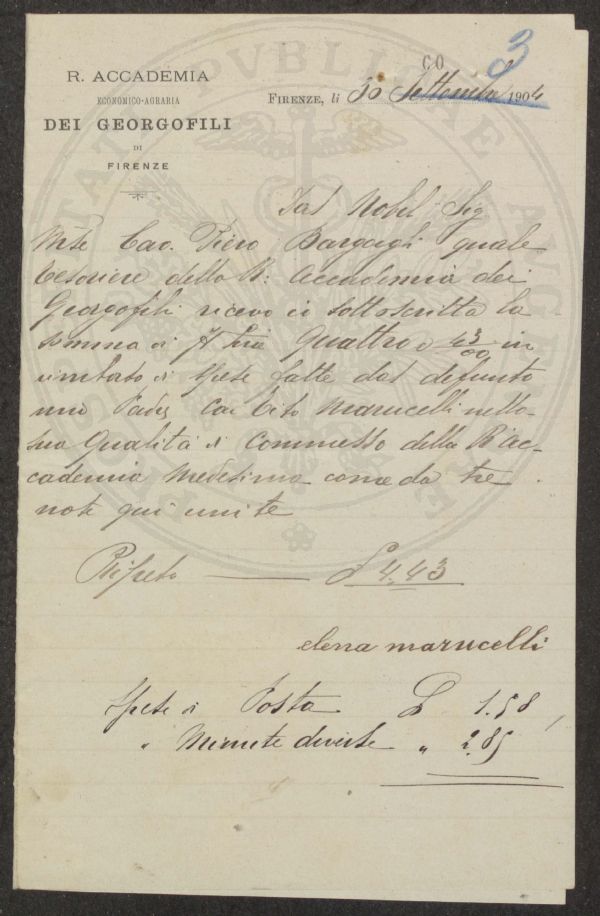 CO 3
R. ACCADEMIA
ECONOMICO-AGRARIA
DEI GEORGOFILI
DI
FIRENZE
FIRENZE, li 30 Settembre 1904
Dal Nobil Sig
Mse Cav. Piero Bargagli quale
Tesoriere della R: Accademia dei
Georgofili ricevo io sottoscritta la
somma di Lire Quattro e 43/00 in
rimborso di spese fatte dal defunto
mio Padre Cav Tito Marucelli nella
sua qualità di Commesso della R Ac-
cademia Medesima come da tre
note qui unite
Ripeto — £ 4.43
elena marucelli
Spese di Posta £ 1.58
" Minute diverse " 2.85